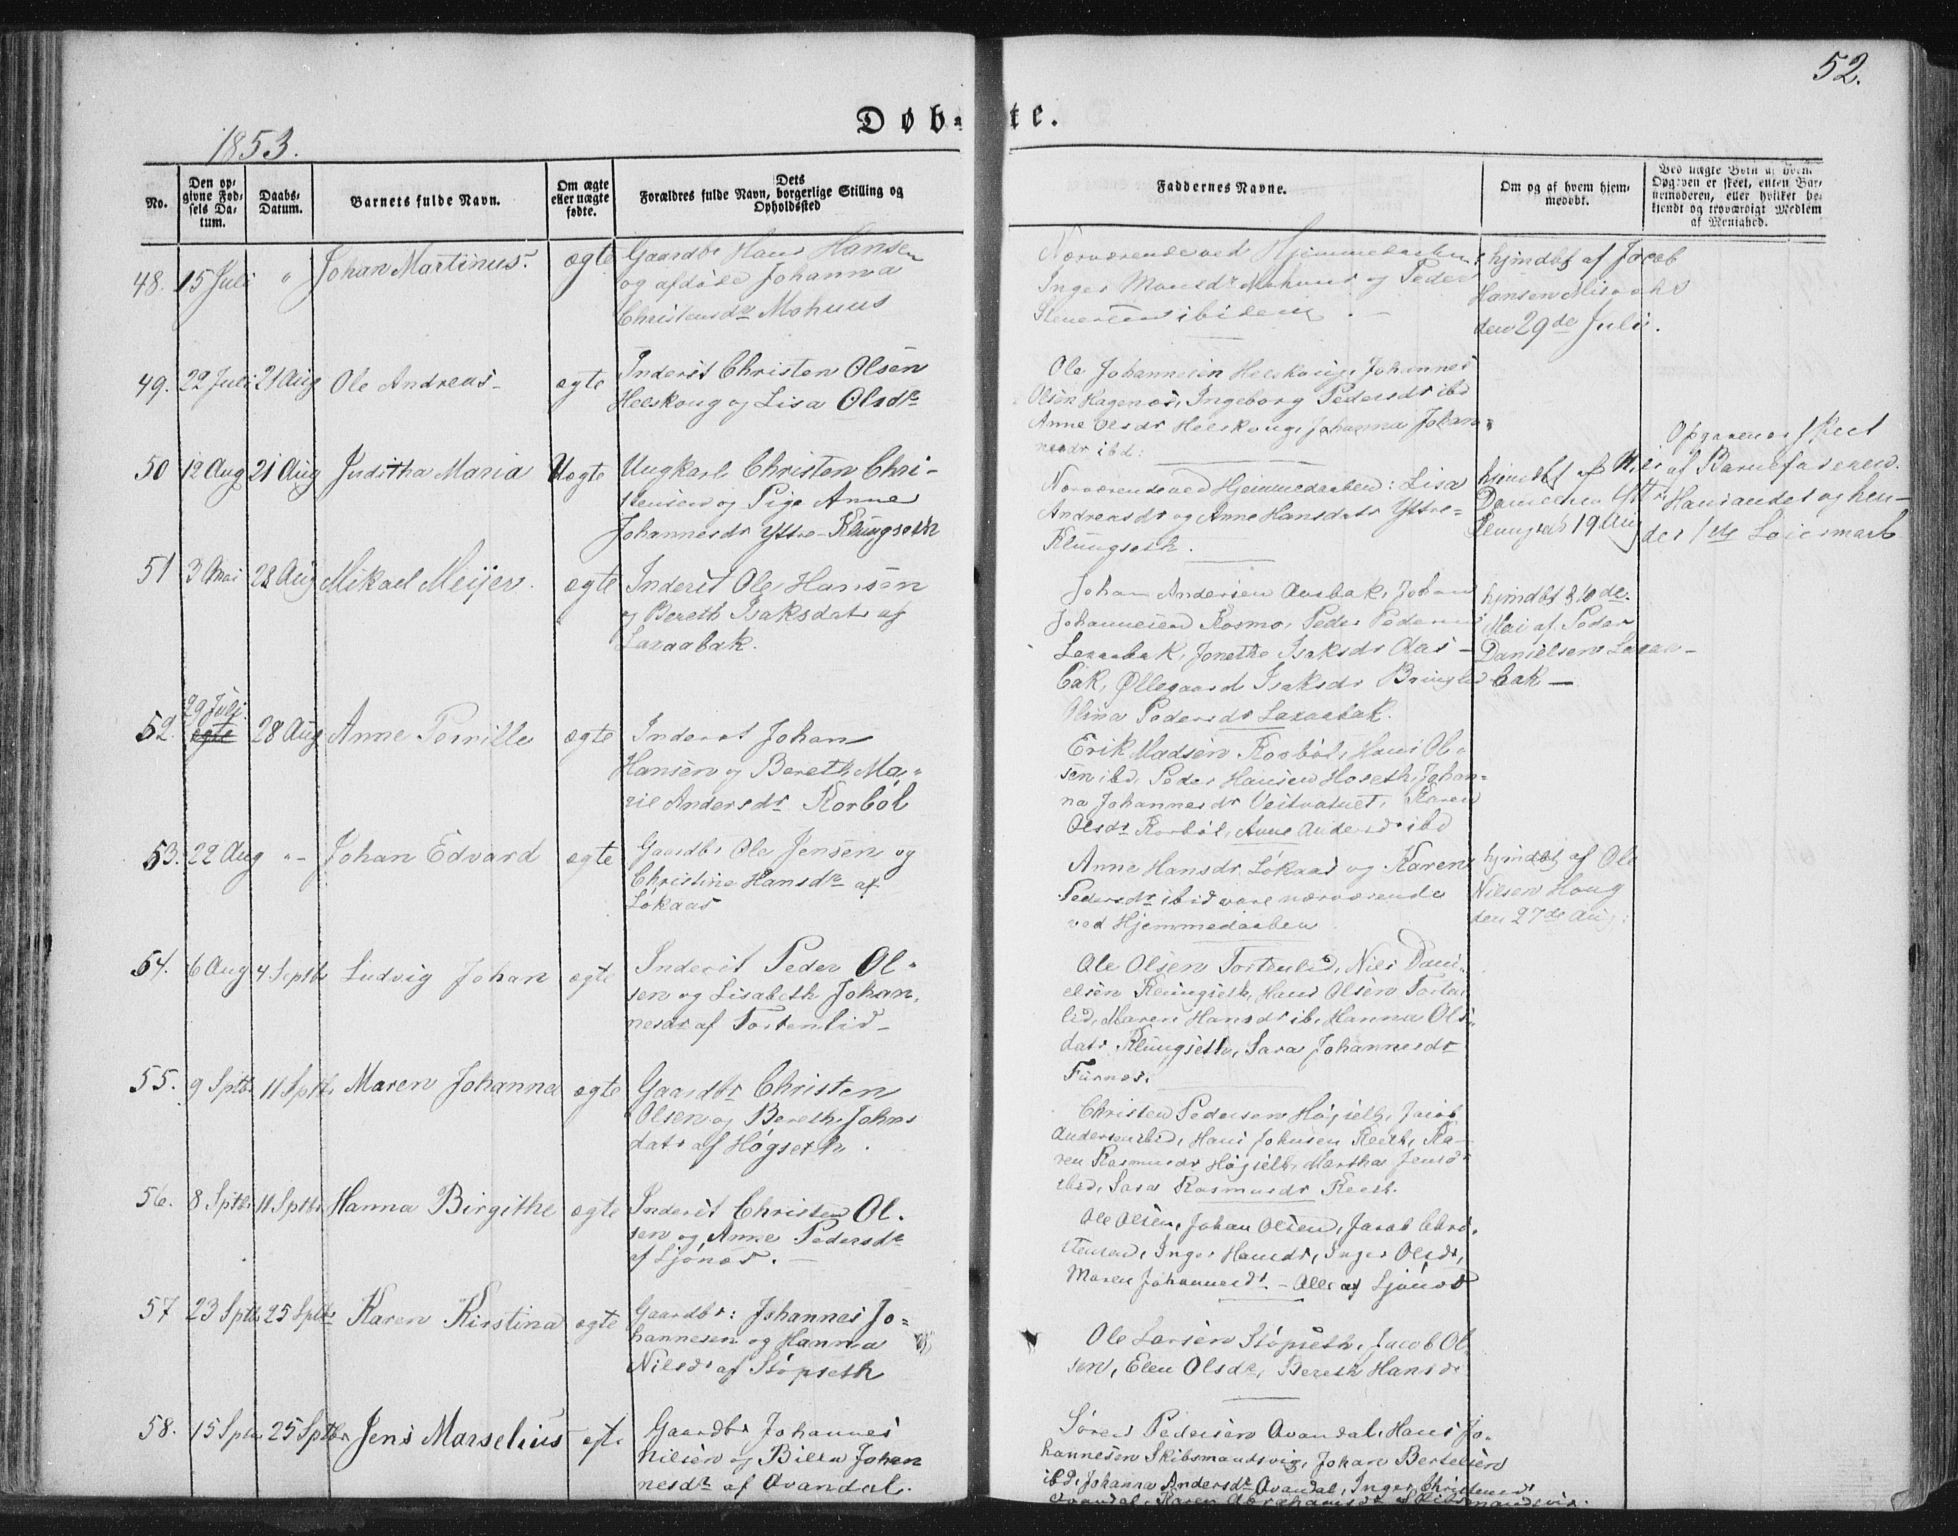 52.
Døb-te.
1853.
No.
Den op-
givne Fød-
sels Da-
tum.
Daabs-
Datum.
Barnets fulde Navn.
Om ægte
eller uægte
fødte.
Dets
Forældres fulde Navn, borgerlige Stilling og
Opholdssted
Faddernes Navne.
Om og af hvem hjem-
medøbt.
Ved uægte Børn af hvem
Opgaven er skeet, enten Bar-
nemoderen, eller hvilket be-
kjendt og troværdigt Medlem
af Menighed.
48. 15 Juli " Johan Martinus. ægte
Gaardbr Hans Hansen
og afdøde Johanna
Christensdr Mohuus
Nærværende ved Hjemmedaaben
Inger Monsdr Mohuus og Peder
ibidem
hjmdbt af Jacob
Hansen
den 29de Juli.
49. 22 Juli 21 Aug Ole Andreas ægte
Inderst Christen Olsen
Helskoug og Lisa Olsdr
Ole Johannesen Helskoug, Johannes
Olsen Hagenæs, Ingeborg Pedersdr ibd
Anne Olsdr Helskoug, Johanna Johan-
nesdr ibd:
50 12 Aug 21 Aug Juditha Maria Uægte
Ungkarl Christen Chri-
stensen og Pige Anne
Johannesdr Yttre-Klungseth
Nærværende ved Hjemmedaaben: Lisa
Andreasdr og Anne Hansdatr Yttre-
Klungseth.
hjmdbt af Nils
Danielsen Yttr
Klungseth 19 Aug
Opgaven er skeet
af Barnefaderen.
Hans andet og hen-
des 1ste Leiermaal
51 3 Mai 28 Aug Mikael Meijer. ægte
Inderst Ole Hansen
og Bereth Isaksdatr af
Laxaabak.
Johan Andersen Aasbak, Johan
Johannesen Rosmo, Peder Pedersen
Laxaabak, Jonetha Isaksdr Aas-
bak, Øllegaard Isaksdr Bringsli
Olina Pedersdr Laxaabak.
hjmdbt d 10de
Mai af Peder
Danielsen Laxaa-
bak —
52. 29 Juli
ægte 28 Aug Anne Pernille ægte
Inderst Johan
Hansen og Bereth Ma-
rie Andersdr Korbøl
Erik Madsen Korbøl, Hans Ol-
sen ibd, Peder Hansen Hoseth, Johan-
na Johannesdr Veitvatnet, Karen
Olsdr Korbøl, Anne Andersdr ibd
53. 22 Aug " Johan Edvard ægte
Gaardbr Ole Jensen og
Christine Hansdr af
Løkaas
Anne Hansdr Løkaas og Karen
Pedersdr ibid vare nærværende
ved Hjemmedaaben
hjmdbt af Ole
Nilsen Houg
den 27de Aug:
54. 6 Aug 4 Septbr Ludvig Johan ægte
Inderst Peder Ol-
sen og Lisabeth Johan-
nesdr af Tostenlid
Ole Olsen Tostenlid, Nils Dani-
elsen Klungseth, Hans Olsen Tosten-
lid, Maren Hansdr ib, Hanna Ols-
datr Klungseth, Sara Johannesdr
Furnes.
55. 9 Sptbr 11 Sptbr Maren Johanna ægte
Gaardbr Christen
Olsen og Bereth Johns
datr af Høgseth.
Christen Pedersen Høgseth, Jacob
Andersen ibid, Hans Johnsen Reeth, Ka-
ren Rasmusdr Høgseth, Martha Jensdr
ibid, Sara Rasmusdr Reeth.
56. 8 Sptbr 11 Sptbr Hanna Birgithe ægte
Inderst Christen Ol-
sen og Anne Pedersdr
af Sjønæs.
Ole Olsen, Johan Olsen, Jacob Chri-
stensen, Inger Hansdr, Inger Olsdr,
Maren Johannesdr — Alle af Sjønæs
57 23 Sptbr 25 Sptbr Karen Kirstina ægte
Gaardbr: Johannes Jo-
hannesen og Hanna
Nilsdr af Støpseth
Ole Larsen Støpseth, Jacob Ol
sen, Elen Olsdr, Bereth Hansdr
58. 15 Sptbr 25 Sptbr Jens Marselius ægte
Gaardbr Johannes
Nilsen og Johan
nesdr af Avandal.
Søren Pedersen Avandal, Hans Jo-
hannesen Skibsmandsvig, Johan Bertelsen
ibd, Johanna Andersdr Avandal, Inger Christensdr
Avandal, Karen Abrahamsdr Skibsmandsvig.